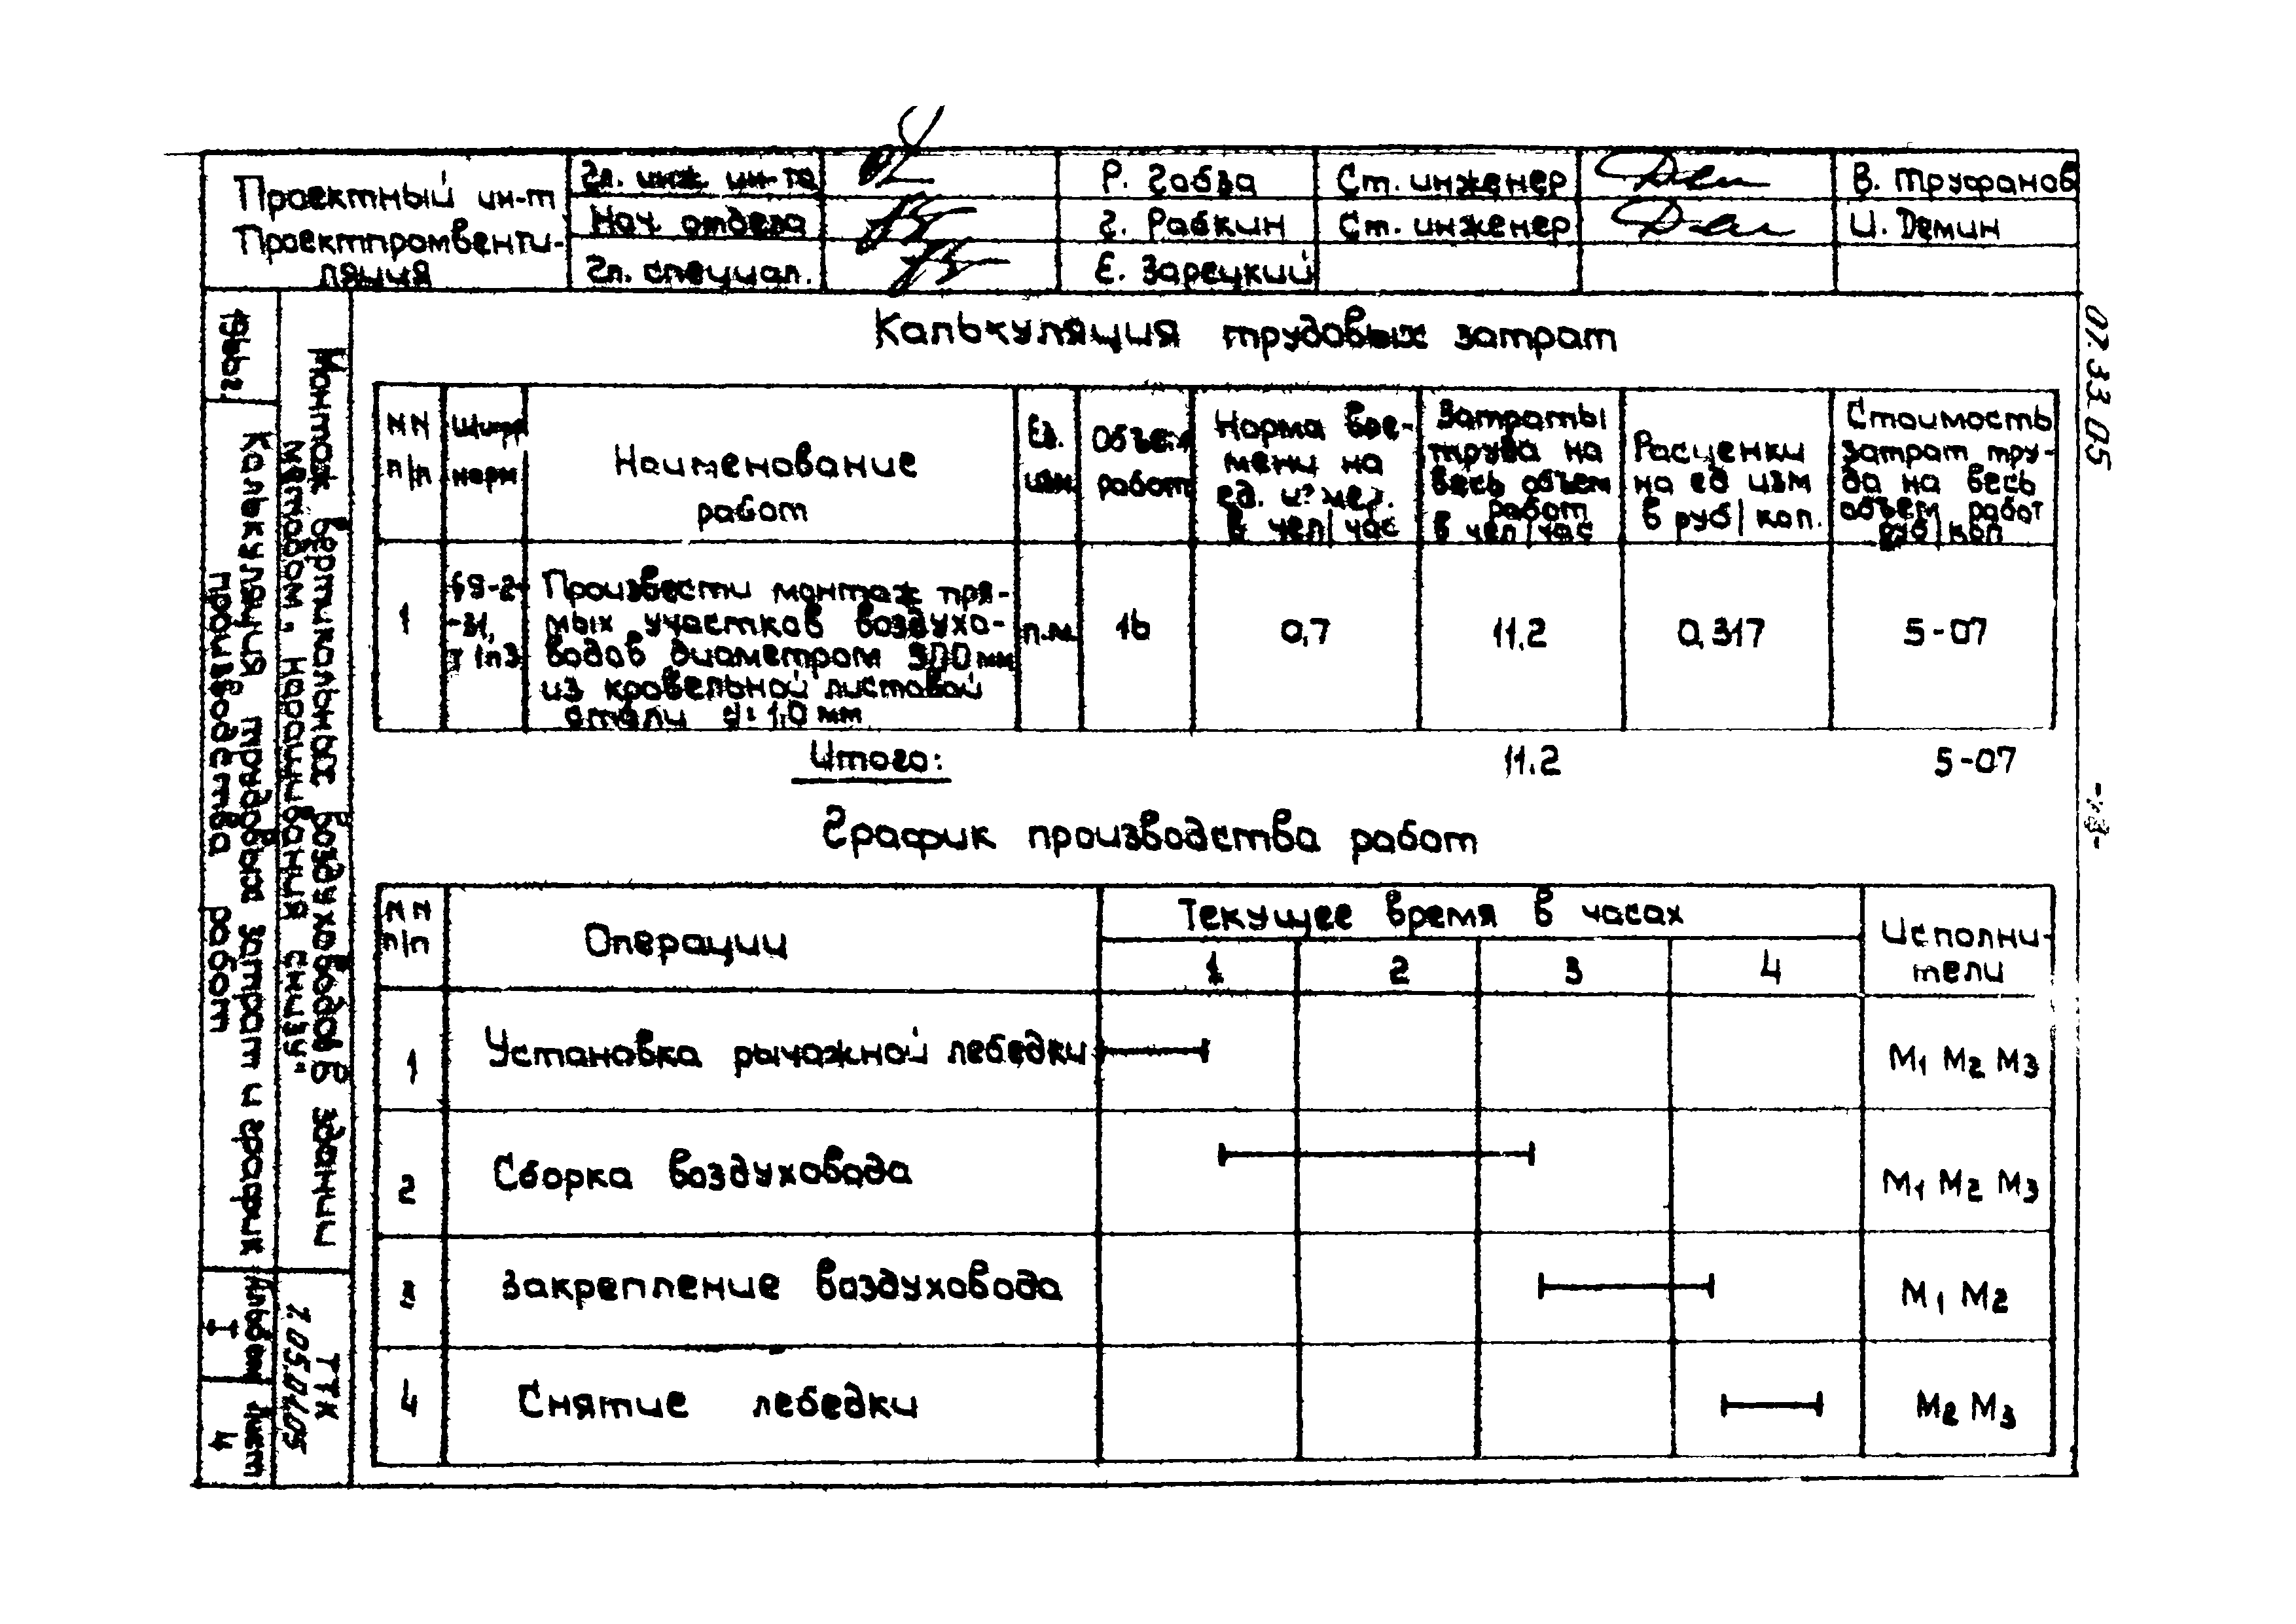 Проектный ин-т
Проектпромвенти-
ляция
Гл. инж. ин-та
Р. Габза
Ст. инженер
В. Труфанов
Нач. отдела
Г. Рабкин
Ст. инженер
И. Демин
Гл. специал.
Е. Зарецкий
07.33.05
Калькуляция трудовых затрат
NN
п/п
Шифр
норм
Наименование
работ
Ед.
изм.
Объем
работ
Норма вре-
мени на
ед. измер.
в чел/час
Затраты
труда на
весь объем
работ
в чел/час
Расценки
на ед изм
в руб/коп.
Стоимость
затрат тру-
да на весь
объем работ
руб/коп
1
-31,
Произвести монтаж пря-
мых участков воздухо-
водов диаметром 900 мм
из кровельной листовой
стали
п.м.
16
0,7
11.2
0,317
5-07
Итого:
11.2
5-07
График производства работ
NN
п/п
Операции
Текущее время в часах
1
2
3
4
Исполни-
тели
1
Установка рычажной лебедки
М1 М2 М3
2
Сборка воздуховода
М1 М2 М3
3
Закрепление воздуховода
М1 М2
4
Снятие лебедки
М2 М3
Монтаж вертикальных воздуховодов в здании
методом „наращивания снизу"
Калькуляция трудовых затрат и график
производства работ
ТТК
7.05.01.05
Альбом
I
Лист
4